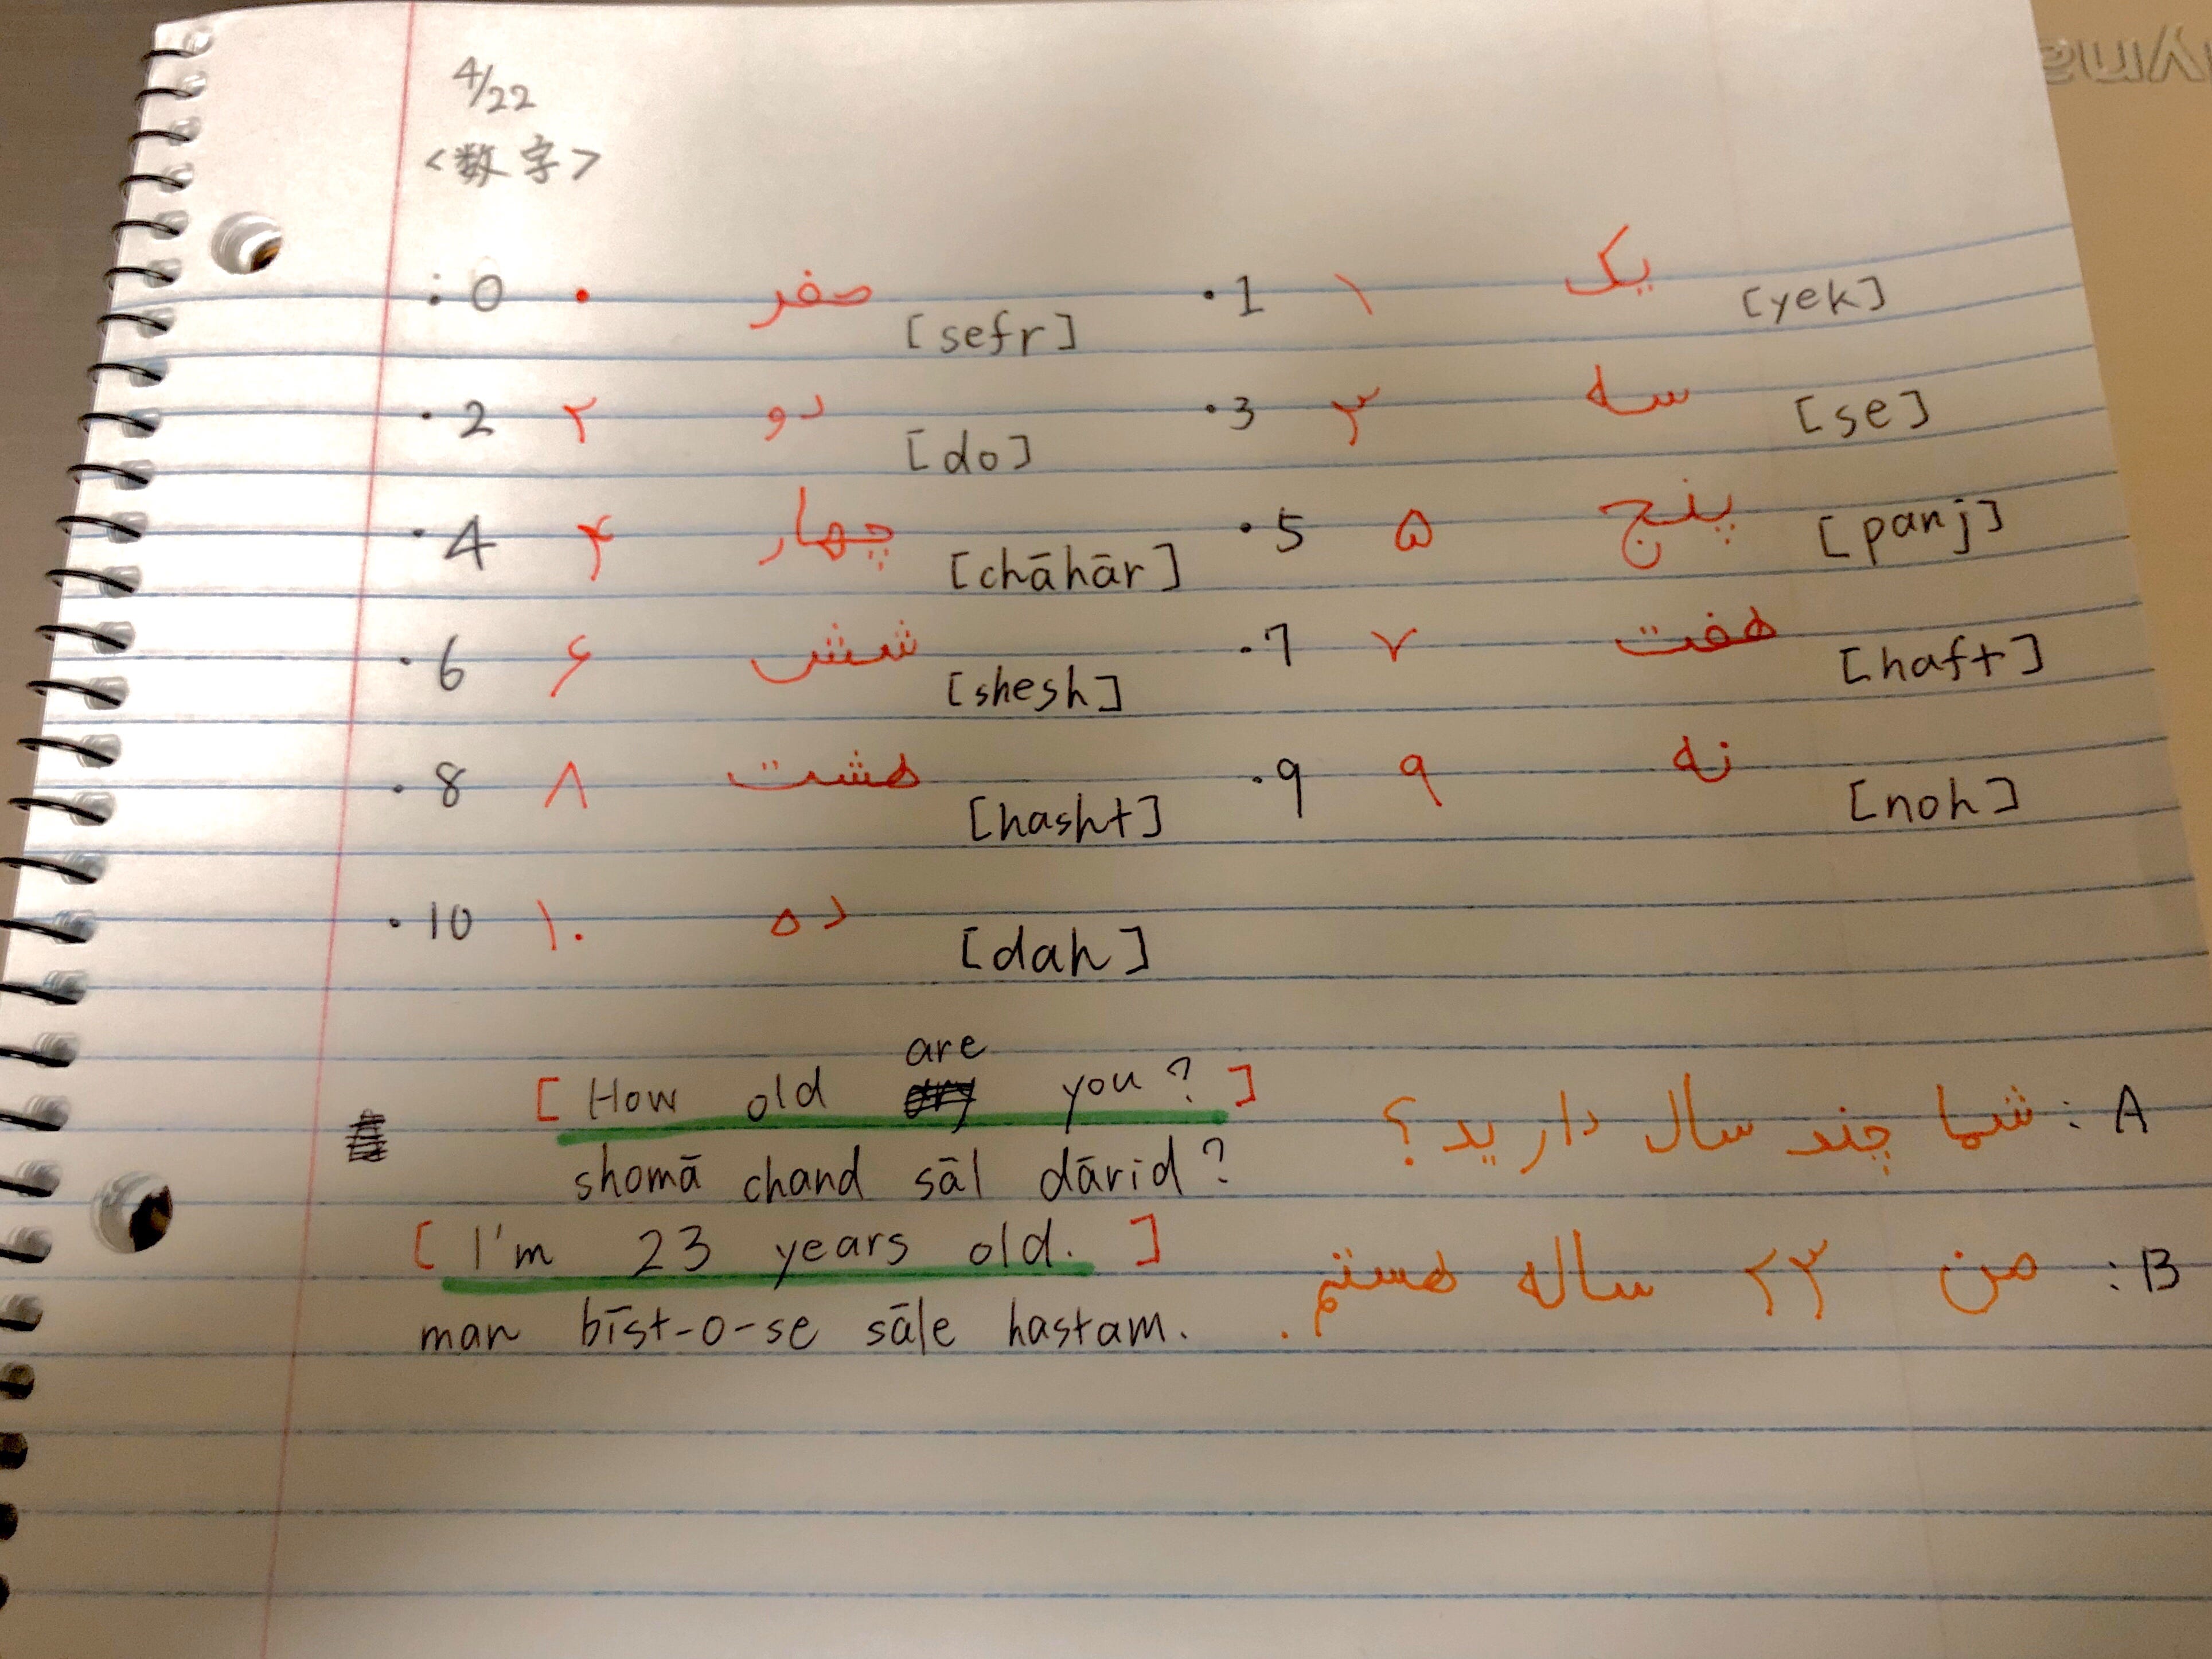 4/22
<数字>
• 0 ۰ صفر [sefr] • 1 ۱ یک [yek]
• 2 ۲ دو [do] • 3 ۳ سه [se]
• 4 ۴ چهار [chāhār] • 5 ۵ پنج [panj]
• 6 ۶ شش [shesh] • 7 ۷ هفت [haft]
• 8 ۸ هشت [hasht] • 9 ۹ نه [noh]
• 10 ۱۰ ده [dah]
[How old are you?] A : شما چند سال دارید؟
shomā chand sāl dārid?
[I'm 23 years old.] B : من ۲۳ ساله هستم.
man bīst-o-se sāle hastam.